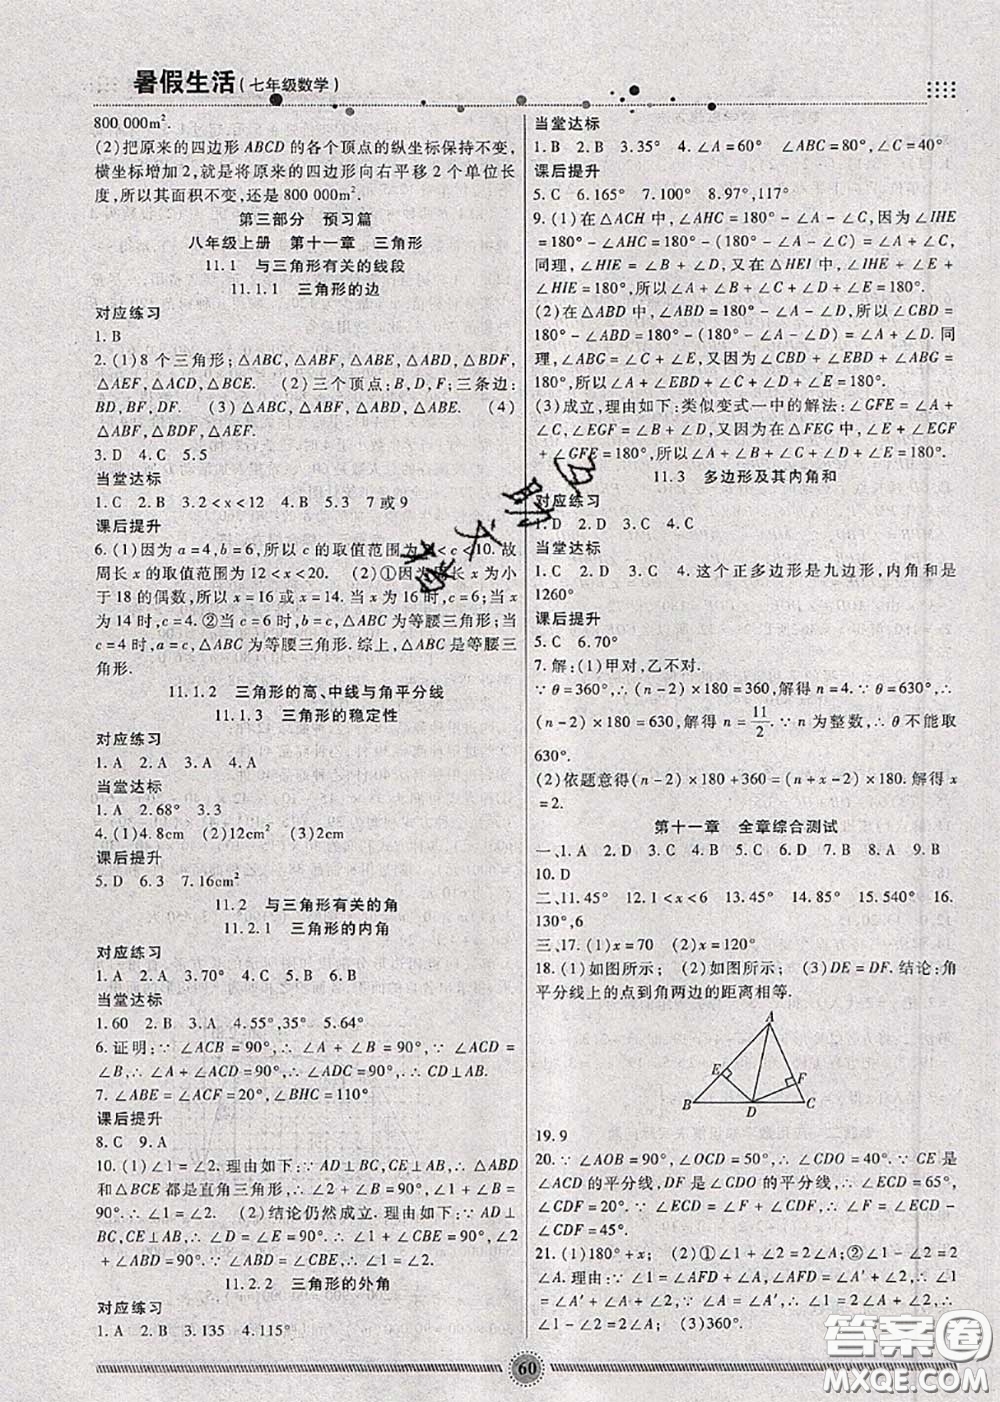 暑假生活(七年级数学)
800 000m².
(2)把原来的四边形ABCD的各个顶点的纵坐标保持不变,
横坐标增加2,就是将原来的四边形向右平移2个单位长
度,所以其面积不变,还是800 000m².
第三部分 预习篇
八年级上册 第十一章 三角形
11.1 与三角形有关的线段
11.1.1 三角形的边
对应练习
1.B
2.(1)8个三角形;△ABC,△ABF,△ABE,△ABD,△BDF,
△AEF,△ACD,△BCE. (2)三个顶点:B,D,F;三条边:
BD,BF,DF. (3)△ABC,△ACD,△BCE. (4)
△ABF,△BDF,△AEF.
3.D 4.C 5.5
当堂达标
1.C 2.B 3.2<x<12 4.B 5.3 7或9
课后提升
6.(1)因为a=4,b=6,所以c的取值范围为2<c<10.故
周长x的取值范围为12<x<20. (2)①因为周长x为小
于18的偶数,所以x=16或x=14.当x为16时,c=6;当x
为14时,c=4.②当c=6时,b=c,△ABC为等腰三角形;当
c=4时,a=c,△ABC为等腰三角形.综上,△ABC是等腰三
角形.
11.1.2 三角形的高、中线与角平分线
11.1.3 三角形的稳定性
对应练习
1.A 2.A 3.A 4.A
当堂达标
1.A 2.68° 3.3
4.(1)4.8cm (2)12cm² (3)2cm
课后提升
5.D 6.3 7.16cm²
11.2 与三角形有关的角
11.2.1 三角形的内角
对应练习
1.A 2.A 3.70° 4.C 5.B 6.B
当堂达标
1.60 2.B 3.A 4.55°,35° 5.64°
6.证明:∵∠ACB=90°,∴∠A+∠B=90°,∵∠ACD=
∠B,∴∠A+∠ACD=90°,∴∠ADC=90°,∴CD⊥AB.
7.∠ABE=∠ACF=20°,∠BHC=110°
课后提升
8.C 9.A
10.(1)∠1=∠2.理由如下:∵AD⊥BC,CE⊥AB,∴△ABD
和△BCE都是直角三角形,∴∠1+∠B=90°,∠2+∠B=
90°,∴∠1=∠2. (2)结论仍然成立.理由如下:∵AD⊥
BC,CE⊥AB,∴∠D=∠E=90°,∴∠1+∠CBE=∠2+
∠ABD=90°,∵∠ABD=∠CBE,∴∠1=∠2.
11.2.2 三角形的外角
对应练习
1.A 2.B 3.135 4.115°
当堂达标
1.B 2.B 3.35° 4.∠A=60° ∠ABC=80°,∠C=40°
课后提升
5.C 6.165° 7.108° 8.97°,117°
9.(1)在△ACH中,∠AHC=180°-∠A-∠C,因为∠IHE
=180°-∠AHC=180°-(180°-∠A-∠C)=∠A+∠C,
同理,∠HIE=∠B+∠D,又在△HEI中,∠IHE+∠E+
∠HIE=180°,所以∠A+∠C+∠E+∠B+∠D=180°.
(2)在△ABD中,∠ABD=180°-∠A-∠D,所以∠CBD=
180°-∠ABD=180°-(180°-∠A-∠D)=∠A+∠D.同
理,∠ABG=∠C+∠E,又因为∠CBD+∠EBD+∠ABG=
180°,所以∠A+∠EBD+∠C+∠D+∠E=180°.
(3)成立,理由如下:类似变式一中的解法:∠GFE=∠A+
∠C,∠EGF=∠B+∠D,又在△FEG中,∠E+∠EGF+
∠GFE=180°,所以∠A+∠B+∠C+∠D+∠E=180°.
11.3 多边形及其内角和
对应练习
1.D 2.D 3.C 4.C
当堂达标
1.C 2.C 3.C 4.这个正多边形是九边形,内角和是
1260°
课后提升
5.C 6.70°
7.解:(1)甲对,乙不对.
∵θ=360°,∴(n-2)×180=360,解得n=4.∵θ=630°,∴
(n-2)×180=630,解得n=11/2.∵n为整数,∴θ不能取
630°.
(2)依题意得(n-2)×180+360=(n+x-2)×180.解得x
=2.
第十一章 全章综合测试
一、1.A 2.D 3.C 4.C 5.A 6.D 7.B 8.A 9.B
10.D
二、11.45° 12.1<x<6 13.45° 14.85° 15.540° 16.
130°,6
三、17.(1)x=70 (2)x=120°
18.(1)如图所示; (2)如图所示; (3)DE=DF.结论:角
平分线上的点到角两边的距离相等.
A
E
F
B D C
19.9
20.∵∠AOB=90°,∠OCD=50°,∴∠CDO=40°.∵CE是
∠ACD的平分线,DF是∠CDO的平分线,∴∠ECD=65°,
∠CDF=20°.∵∠ECD=∠F+∠CDF,∴∠F=∠ECD-
∠CDF=45°.
21.(1)180°+x (2)①∠1+∠2=2∠A;②∠1-∠2=
2∠A.理由:∵∠1=∠AFD+∠A,∴∠AFD=∠A'+∠2,∴∠1=
∠A'+∠A+∠2,∵∠A=∠A',∴∠1=2∠A+∠2,
∴∠1-∠2=2∠A; (3)360°.
60
答案卷
MXQE.COM